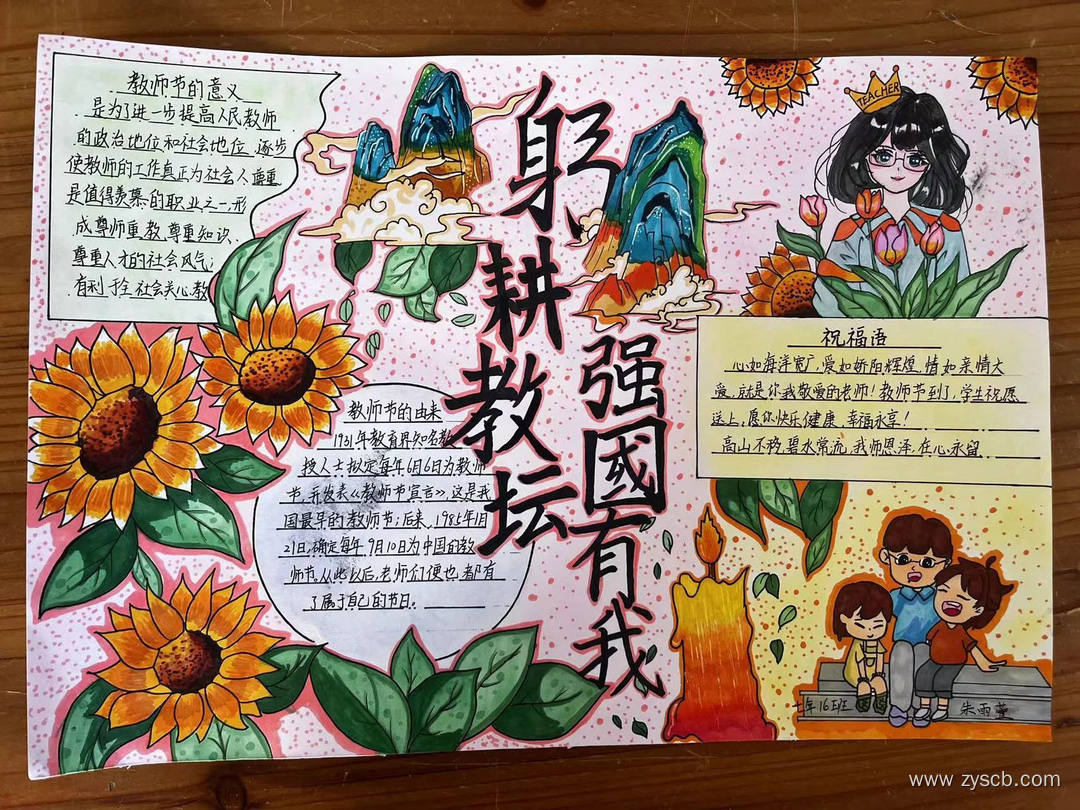 教师节的意义
是为了进一步提高人民教师
的政治地位和社会地位,逐步
使教师的工作真正为社会人尊重
是值得羡慕的职业之一,形
成尊师重教,尊重知识、
尊重人才的社会风气;
有利于全社会关心教
躬耕教坛
强國有我
TEACHER
祝福语
心如海洋宽广,爱如娇阳辉煌,情如亲情大
爱,就是你我敬爱的老师!教师节到了,学生祝愿
送上,愿你快乐健康、幸福永享!
高山不移,碧水常流,我师恩泽,在心永留
教师节的由来
1931年教育界知名教
授人士拟定每年6月6日为教师
节,并发表《教师节宣言》,这是我
国最早的教师节;后来,1985年1月
21日,确定每年9月10日为中国的教
师节,从此以后,老师们便也都有
了属于自己的节日。
年16班
朱雨
www.zyscb.com